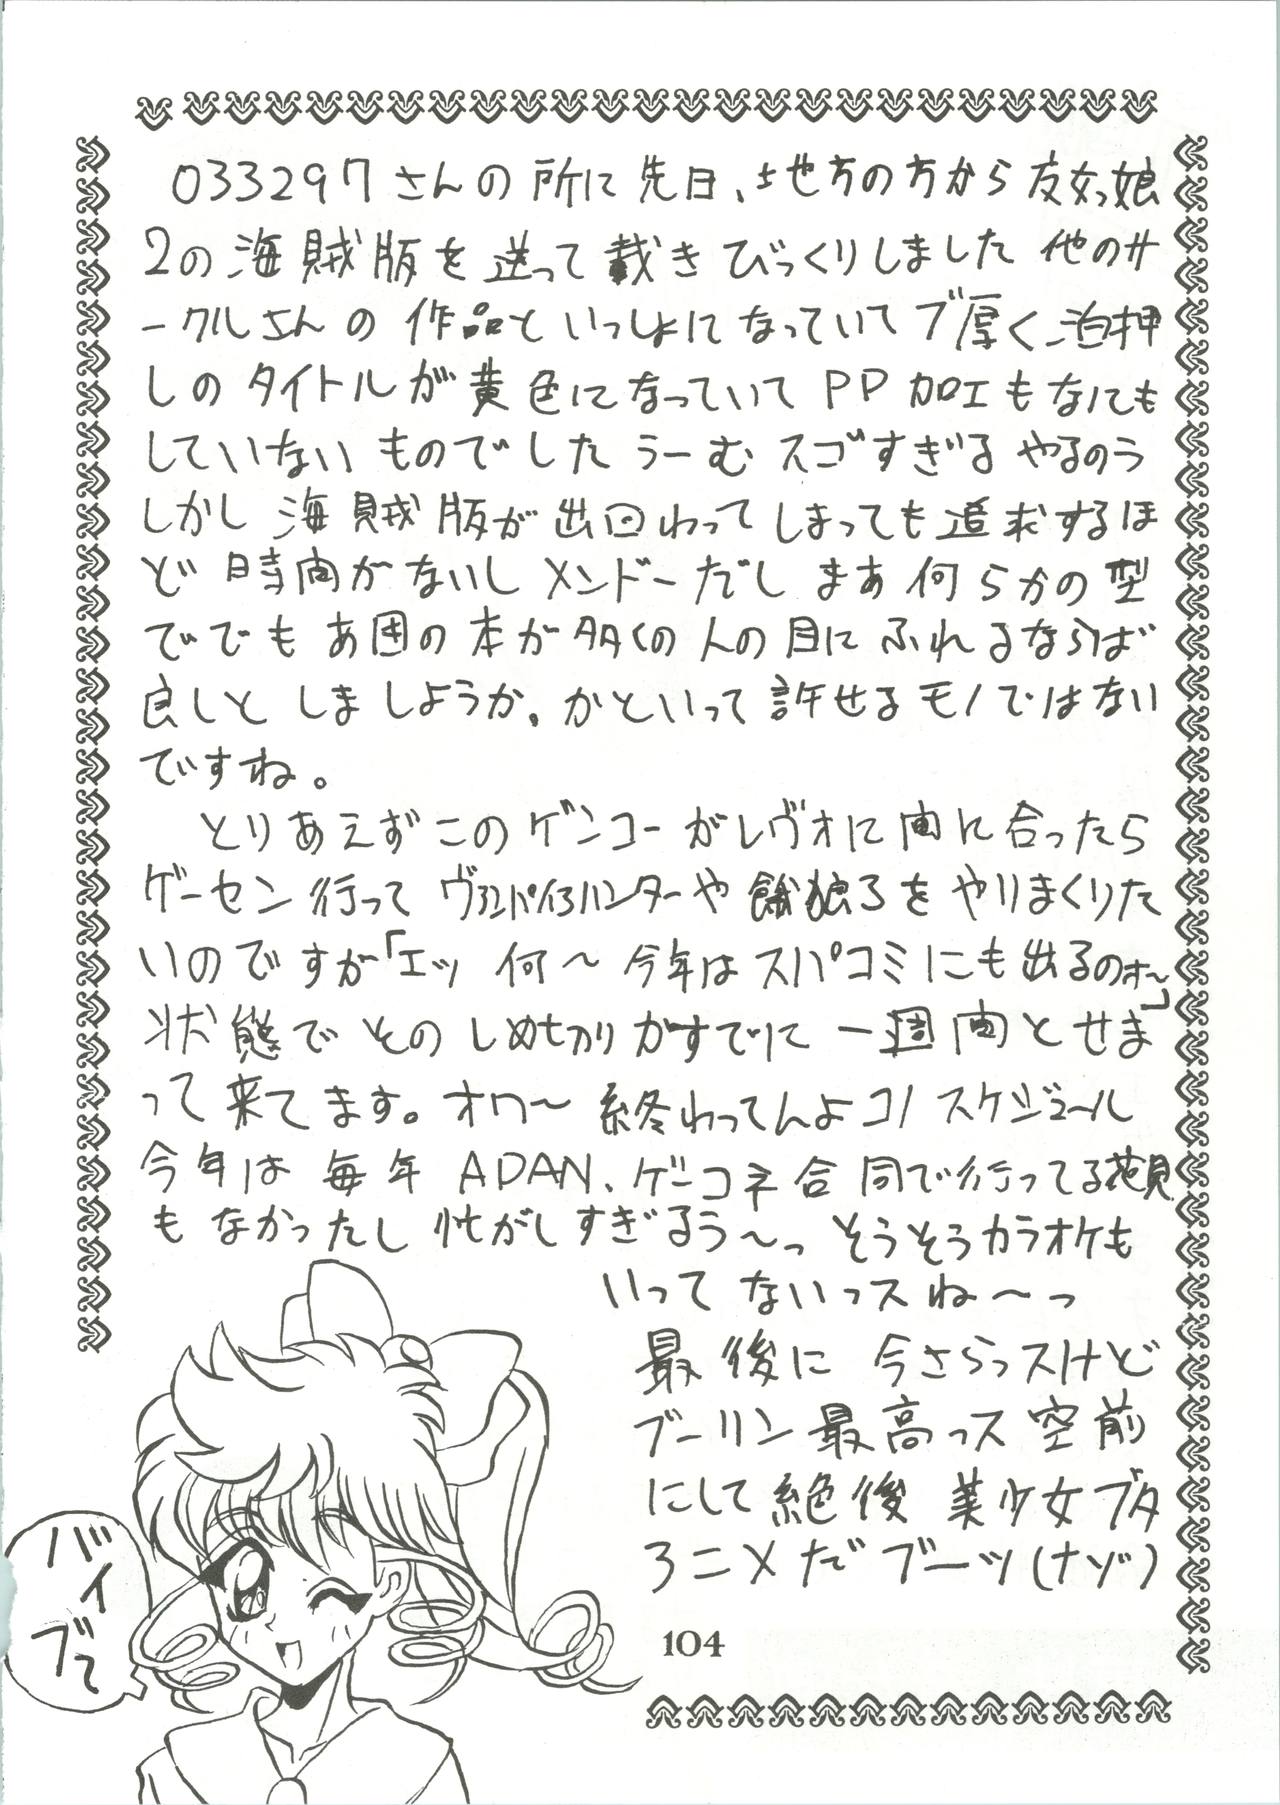 033297さんの所に先日、地方の方から友女っ娘
2の海賊版を送って戴きびっくりしました 他のサ
ークルさんの作品といっしょになっていてブ厚く、泊押
しのタイトルが黄色になっていてPP加工もなにも
していないものでした うーむ スゴすぎる やるのう
しかし 海賊版が出回わってしまっても追求するほ
ど時間がないし メンドーだし まあ何らかの型
ででも あ囲の本が多くの人の目にふれるならば
良しと しましょうか。かといって許せるモノではない
ですね。
とりあえずこのゲンコーがレヴォに間に合ったら
ゲーセン行って ヴァンパイアハンターや餓狼3をやりまくりた
いのですが「エッ 何〜 今年はスパコミにも出るのォ〜」
状態で そのしめちりがすでに 一週間とせま
って来てます。オワ〜 終わってんよコノ スケジュール
今年は 毎年 ADAN、ゲーコネ合同で行ってる花見
もなかったし 忙がしすぎるぅ〜っ そうそうカラオケも
いってないっスね〜っ
最後に 今さらっスけど
ブーリン最高っス 空前
にして絶後 美少女ブタ
アニメだ ブーッ(ナゾ)
バイブて
104